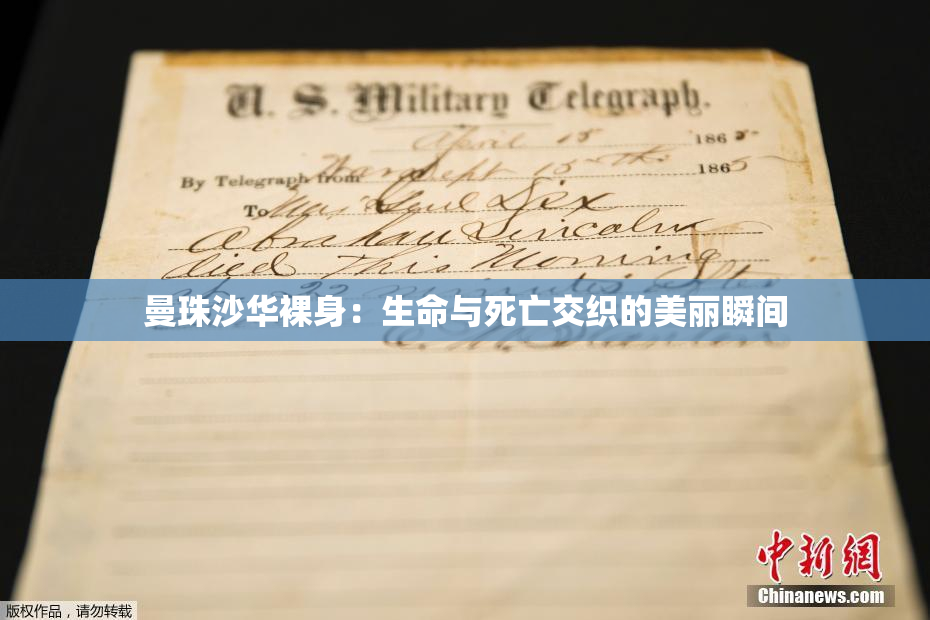 U. S. Military Telegraph.
April 15 1865
By Telegraph from War Dept 15th 1865
To Maj Genl Dix
Abraham Lincoln
died This Morning
22 minutes after
曼珠沙华裸身：生命与死亡交织的美丽瞬间
E. M. Stanton
中新网
Chinanews.com
版权作品，请勿转载